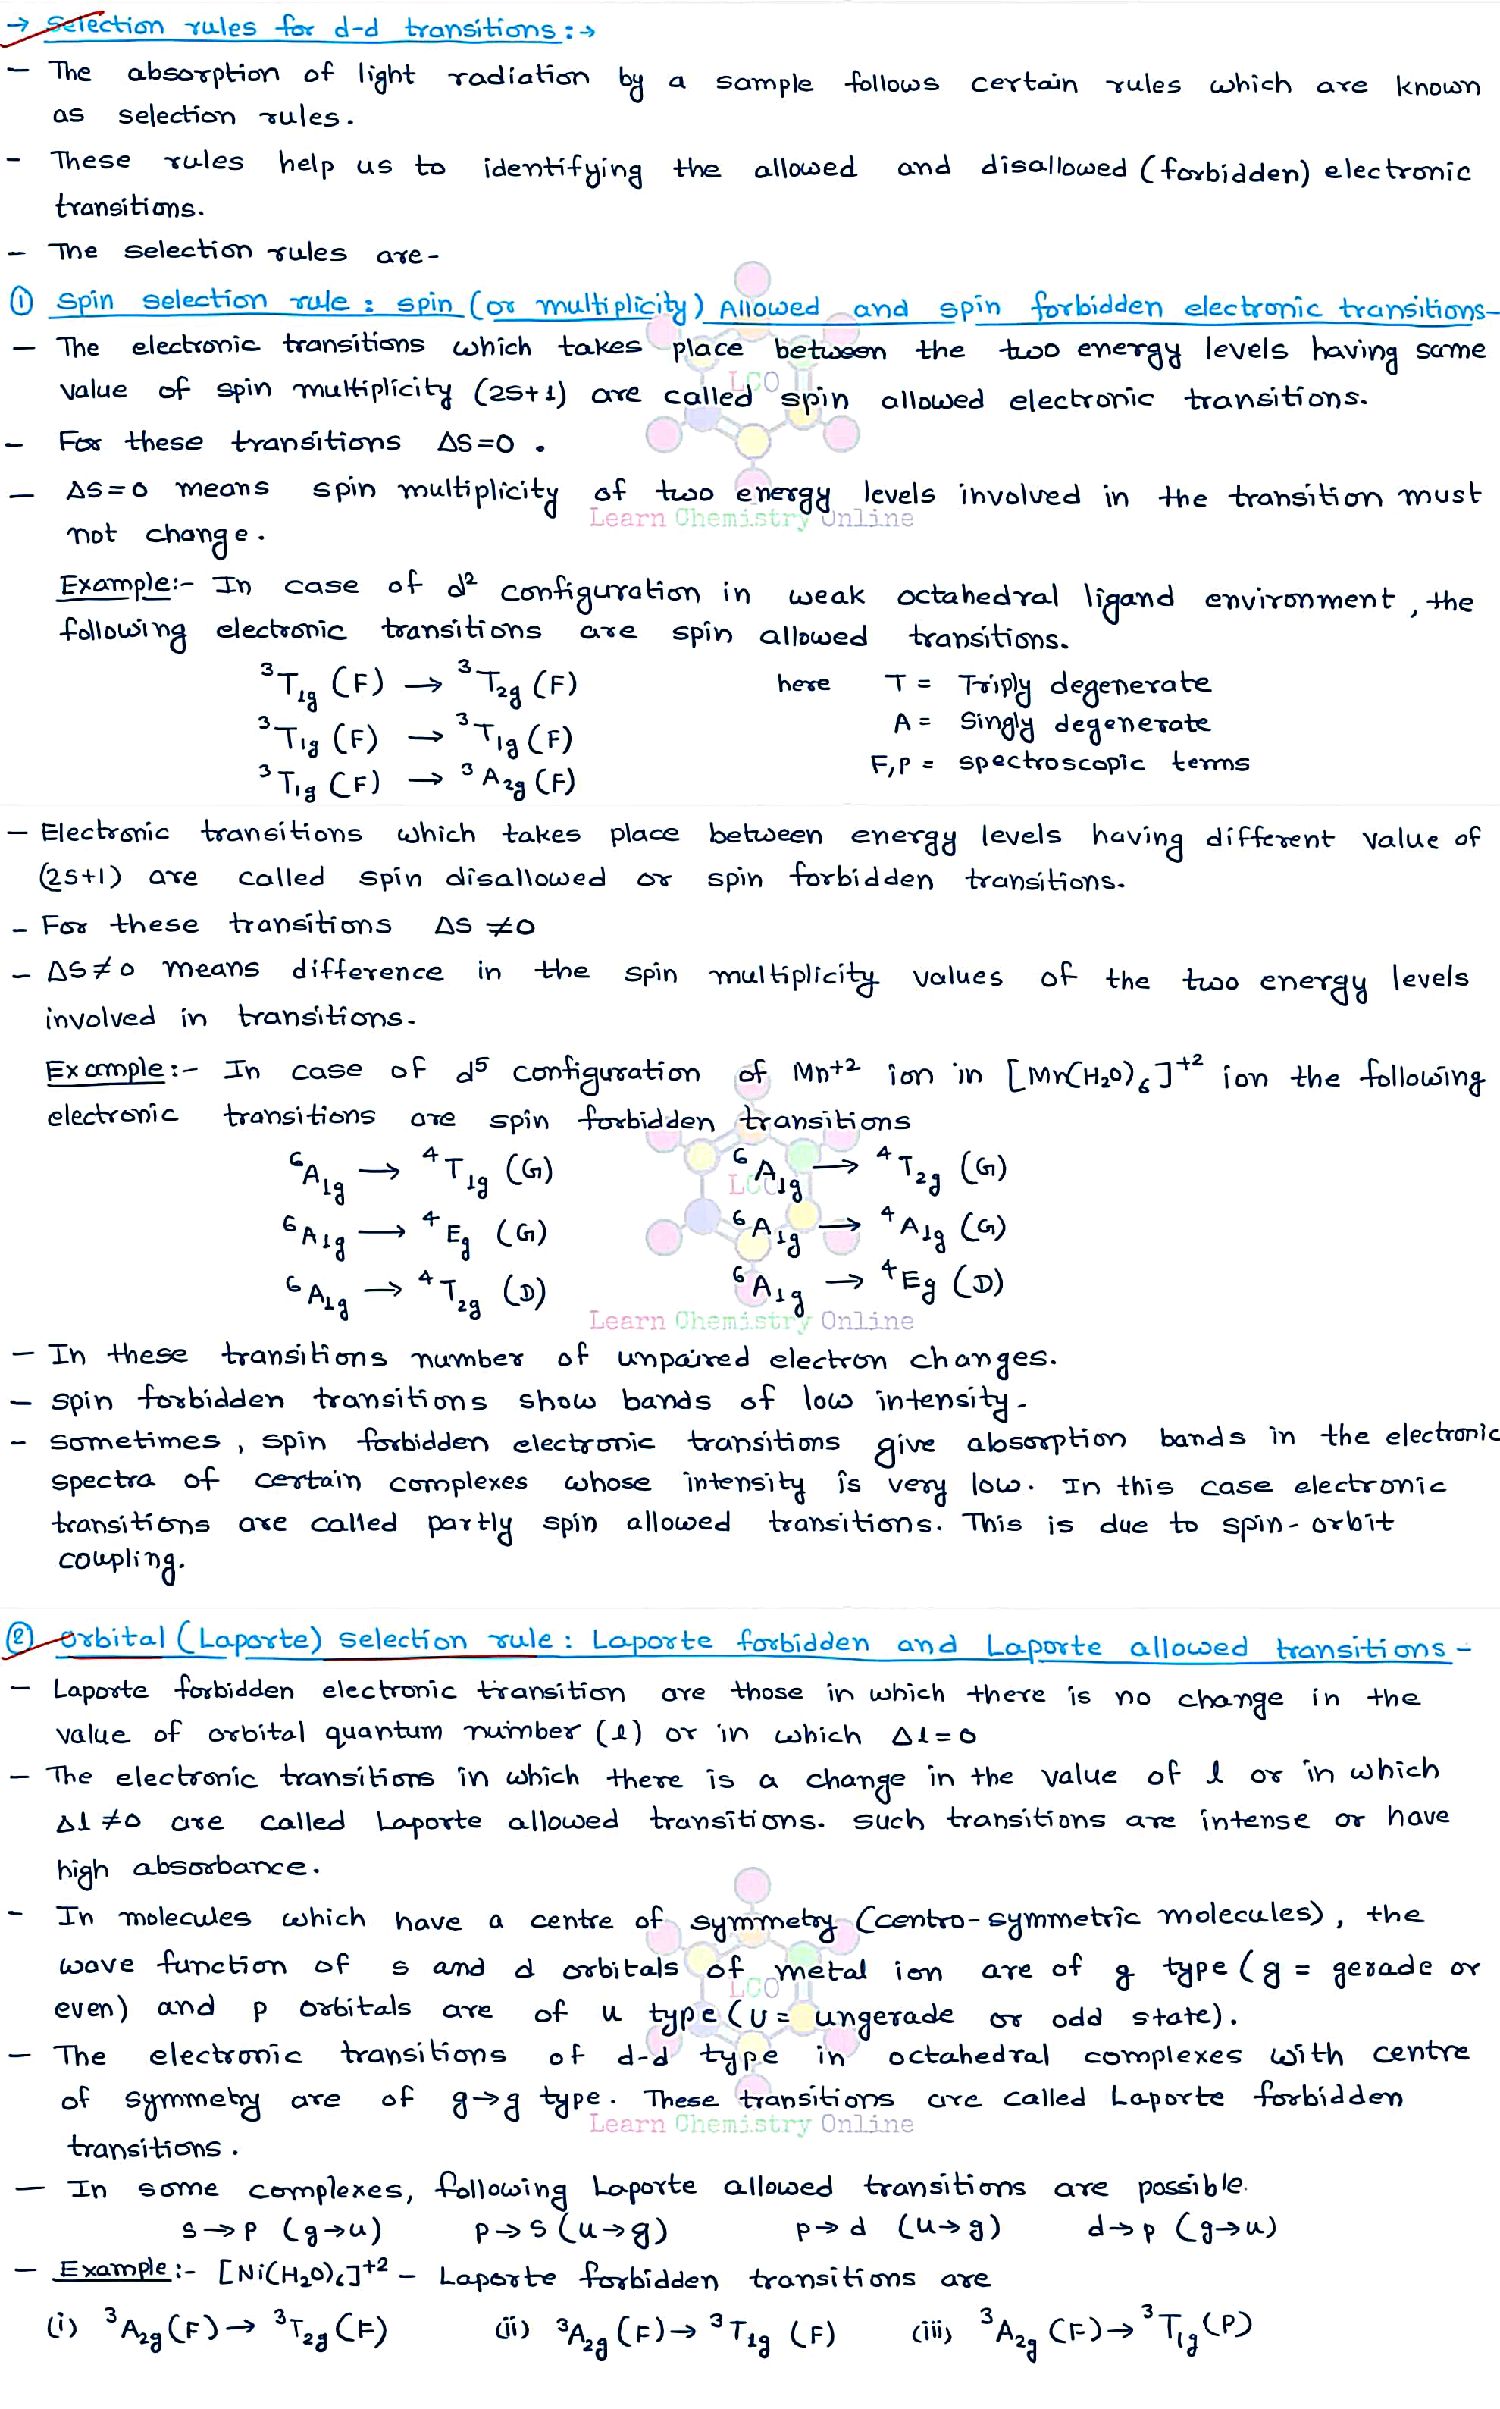 → Selection rules for d-d transitions :→
– The absorption of light radiation by a sample follows certain rules which are known
as selection rules.
– These rules help us to identifying the allowed and disallowed (forbidden) electronic
transitions.
– The selection rules are-
① Spin selection rule : spin (or multiplicity) Allowed and spin forbidden electronic transitions-
– The electronic transitions which takes place between the two energy levels having same
value of spin multiplicity (2S+1) are called spin allowed electronic transitions.
LCO
– For these transitions ΔS=0 .
– ΔS=0 means spin multiplicity of two energy levels involved in the transition must
Learn Chemistry Online
not change.
Example:- In case of d² configuration in weak octahedral ligand environment, the
following electronic transitions are spin allowed transitions.
³T₁g (F) → ³T₂g (F) here T = Triply degenerate
³T₁g (F) → ³T₁g (F) A = Singly degenerate
³T₁g (F) → ³A₂g (F) F,P = spectroscopic terms
– Electronic transitions which takes place between energy levels having different value of
(2S+1) are called spin disallowed or spin forbidden transitions.
– For these transitions ΔS ≠0
– ΔS≠0 means difference in the spin multiplicity values of the two energy levels
involved in transitions.
Example:- In case of d⁵ configuration of Mn⁺² ion in [Mn(H₂O)₆]⁺² ion the following
electronic transitions are spin forbidden transitions
⁶A₁g → ⁴T₁g (G) ⁶A₁g → ⁴T₂g (G)
LCO
⁶A₁g → ⁴Eg (G) ⁶A₁g → ⁴A₁g (G)
⁶A₁g → ⁴T₂g (D) ⁶A₁g → ⁴Eg (D)
Learn Chemistry Online
– In these transitions number of unpaired electron changes.
– Spin forbidden transitions show bands of low intensity.
– Sometimes, spin forbidden electronic transitions give absorption bands in the electronic
spectra of certain complexes whose intensity is very low. In this case electronic
transitions are called partly spin allowed transitions. This is due to spin-orbit
coupling.
② Orbital (Laporte) selection rule : Laporte forbidden and Laporte allowed transitions -
– Laporte forbidden electronic transition are those in which there is no change in the
value of orbital quantum number (l) or in which Δl=0
– The electronic transitions in which there is a change in the value of l or in which
Δl ≠0 are called Laporte allowed transitions. Such transitions are intense or have
high absorbance.
– In molecules which have a centre of symmetry (centro-symmetric molecules), the
wave function of s and d orbitals of metal ion are of g type (g = gerade or
LCO
even) and p orbitals are of u type (U = ungerade or odd state).
– The electronic transitions of d-d type in octahedral complexes with centre
of symmetry are of g→g type. These transitions are called Laporte forbidden
Learn Chemistry Online
transitions.
– In some complexes, following Laporte allowed transitions are possible.
s→p (g→u) p→s (u→g) p→d (u→g) d→p (g→u)
– Example:- [Ni(H₂O)₆]⁺² – Laporte forbidden transitions are
(i) ³A₂g (F) → ³T₂g (F) (ii) ³A₂g (F) → ³T₁g (F) (iii) ³A₂g (F) → ³T₁g (P)